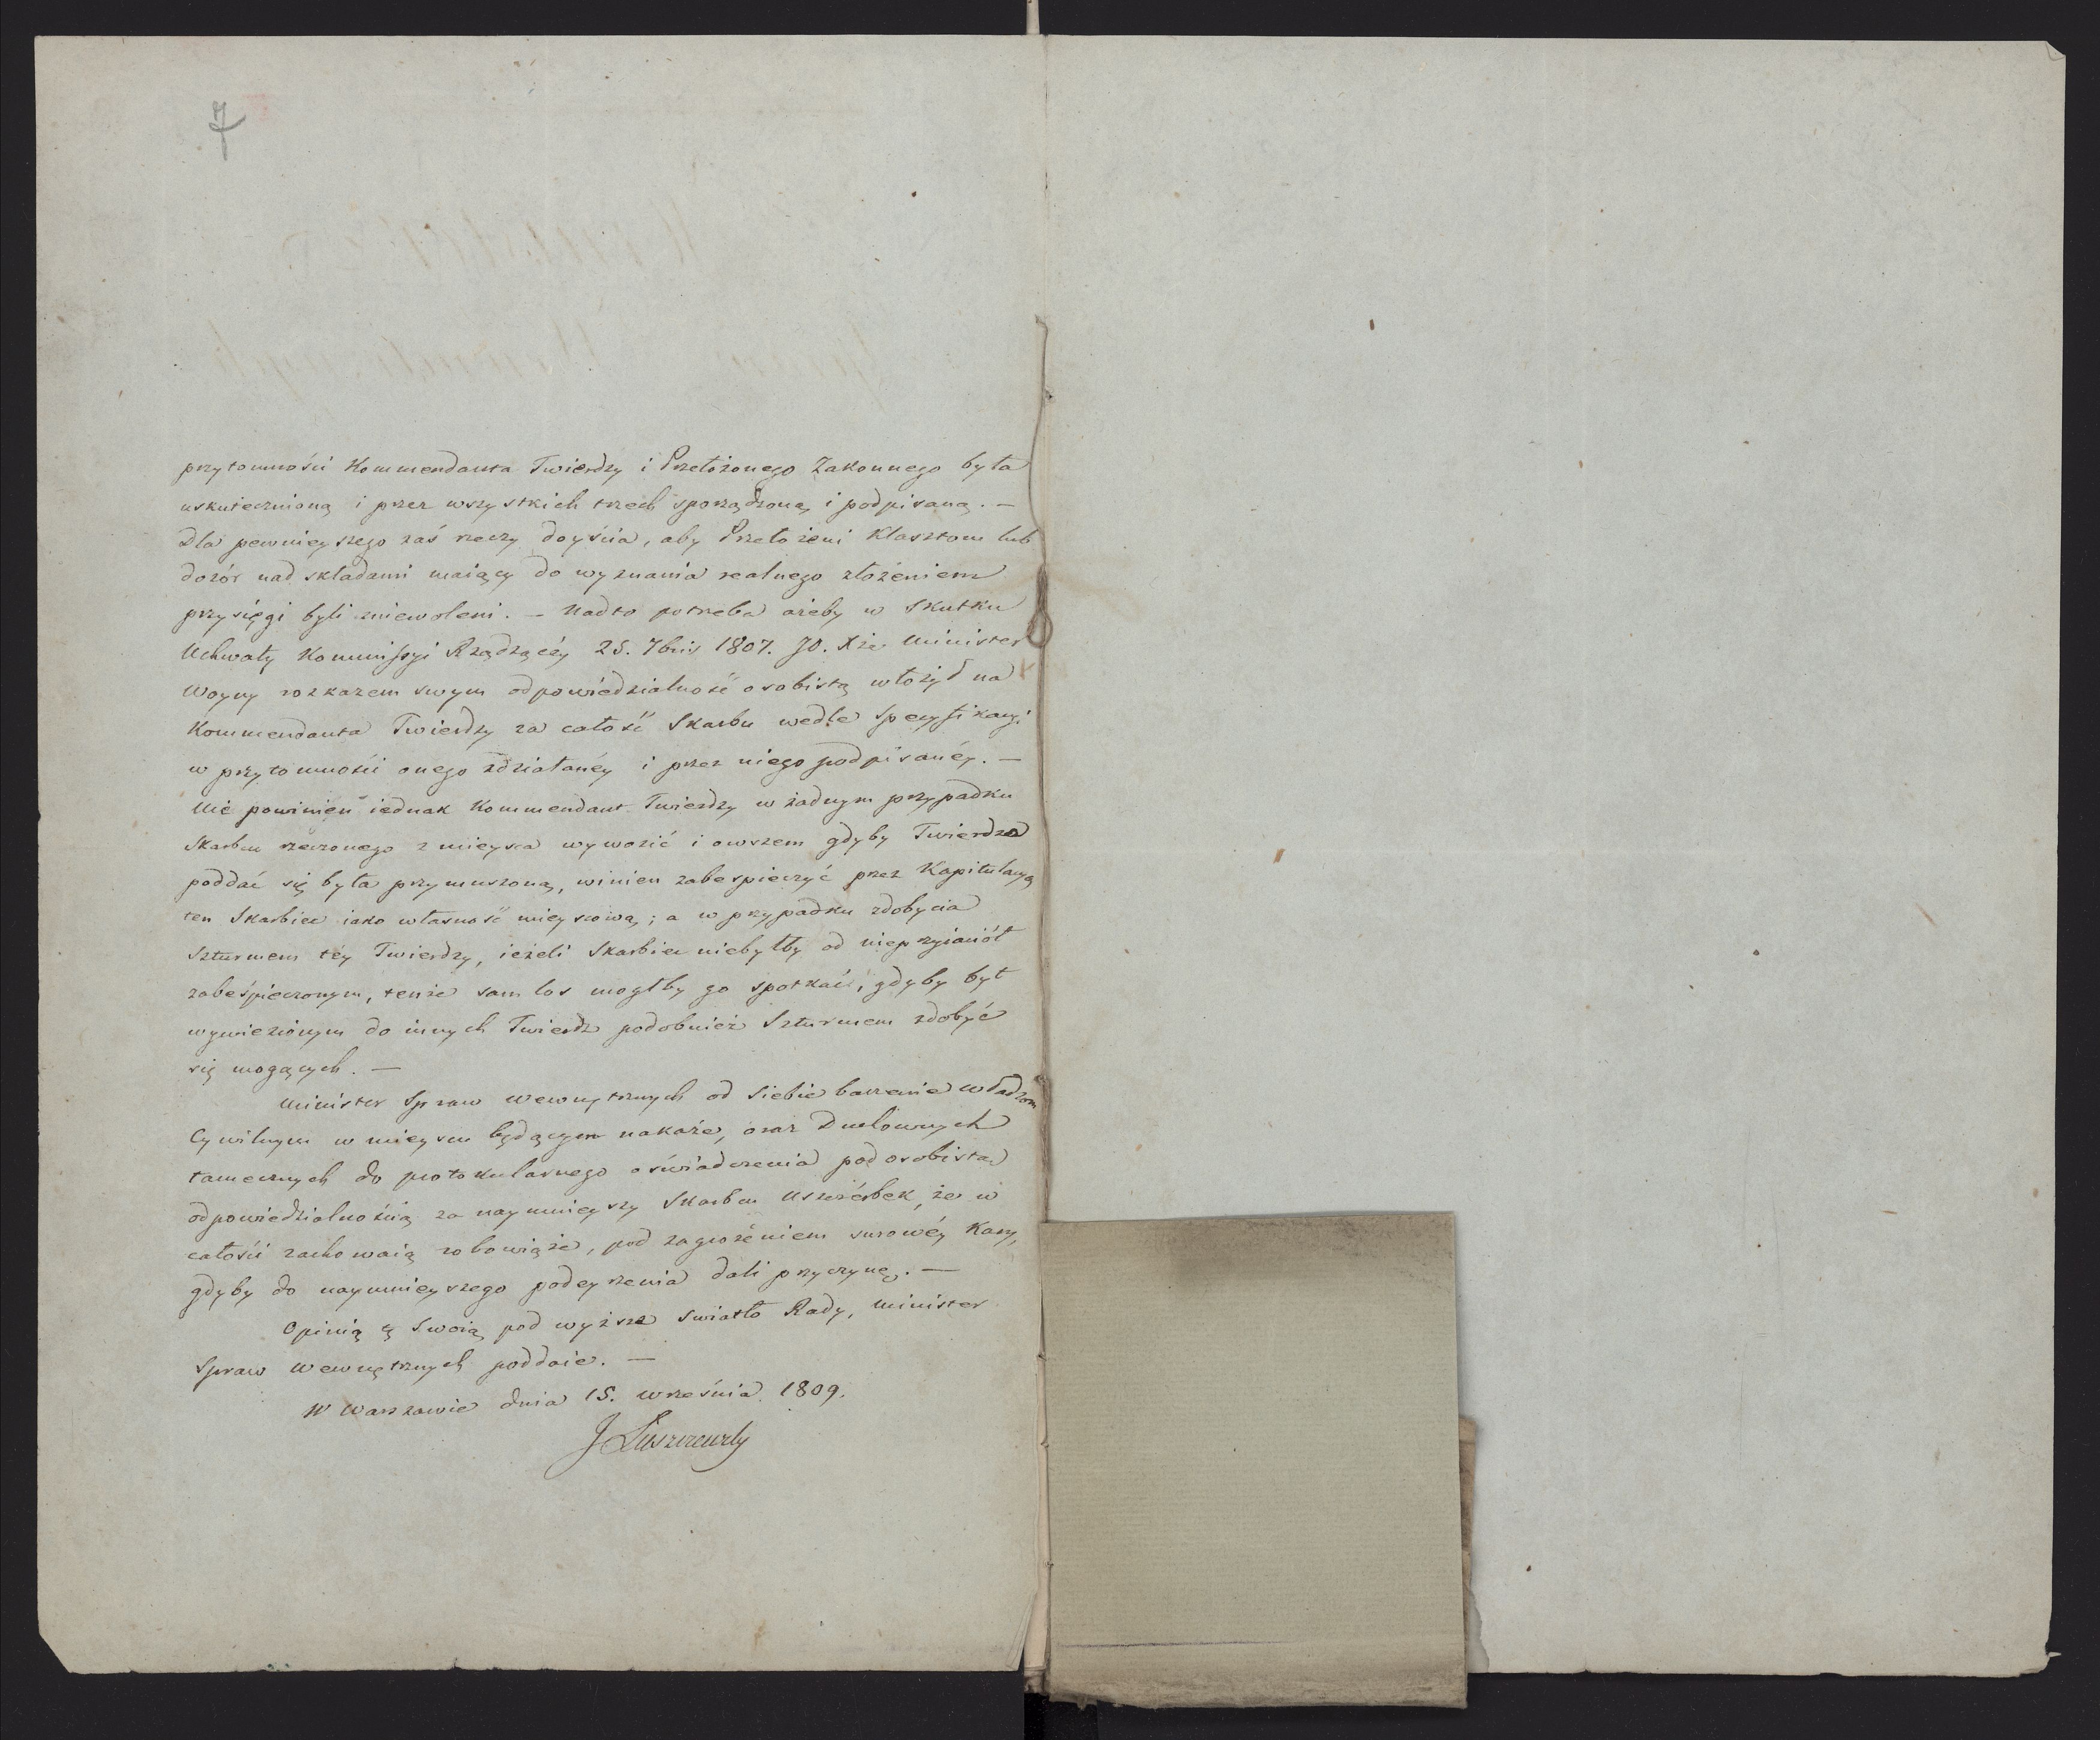 7
przytomności Kommendanta Twierdzy i Przełożonego Zakonnego była
uskutecznioną i przez wszystkich trzech sporządzoną i podpisaną. —
Dla pewnieyszego zaś rzeczy doyścia, aby Przełożeni Klasztoru lub
dozór nad składami maiący do wyznania realnego złożeniem
przysięgi byli zniewoleni. — Nadto potrzeba ażeby w skutku
Uchwały Kommissyi Rządzącéy 25. 7bris 1807. JO. Xże Minister
Woyny rozkazem swym odpowiedzialność osobistą włożył na
Kommendanta Twierdzy za całość Skarbu wedle specyfikacyi
w przytomności onego zdziałanéy i przez niego podpisanéy. —
Nie powinien iednak Kommendant Twierdzy w żadnym przypadku
Skarbcu rzeczonego z mieysca wywozić i owszem gdyby Twierdza
poddać się była przymuszoną, winien zabespieczyć przez Kapitulacyą
ten Skarbiec iako własność mieyscową; a w przypadku zdobycia
Szturmem téy Twierdzy, ieżeli Skarbiec niebyłby od nieprzyiaciół
zabeśpieczonym, tenże sam los mogłby go spotkać, gdyby był
wywiezionym do innych Twierdz podobnież Szturmem zdobyć
się mogących. —
Minister Spraw Wewnętrznych od Siebie baczenie władzom
Cywilnym w mieyscu będącym nakaże, oraz Duchownych
tamecznych do protokularnego oświadczenia pod osobistą
odpowiedzialnością za naymnieyszy Skarbcu uszczérbek, że w
całości zachowaią zobowiąże, pod zagrożeniem surowéy Kary,
gdyby do naymnieyszego podeyrzenia dali przyczynę. —
Opinią tę Swoią pod wyższe Swiatło Rady, Minister
Spraw Wewnętrznych poddaie. —
W Warszawie dnia 15. Września 1809.
J Łuszczewsky